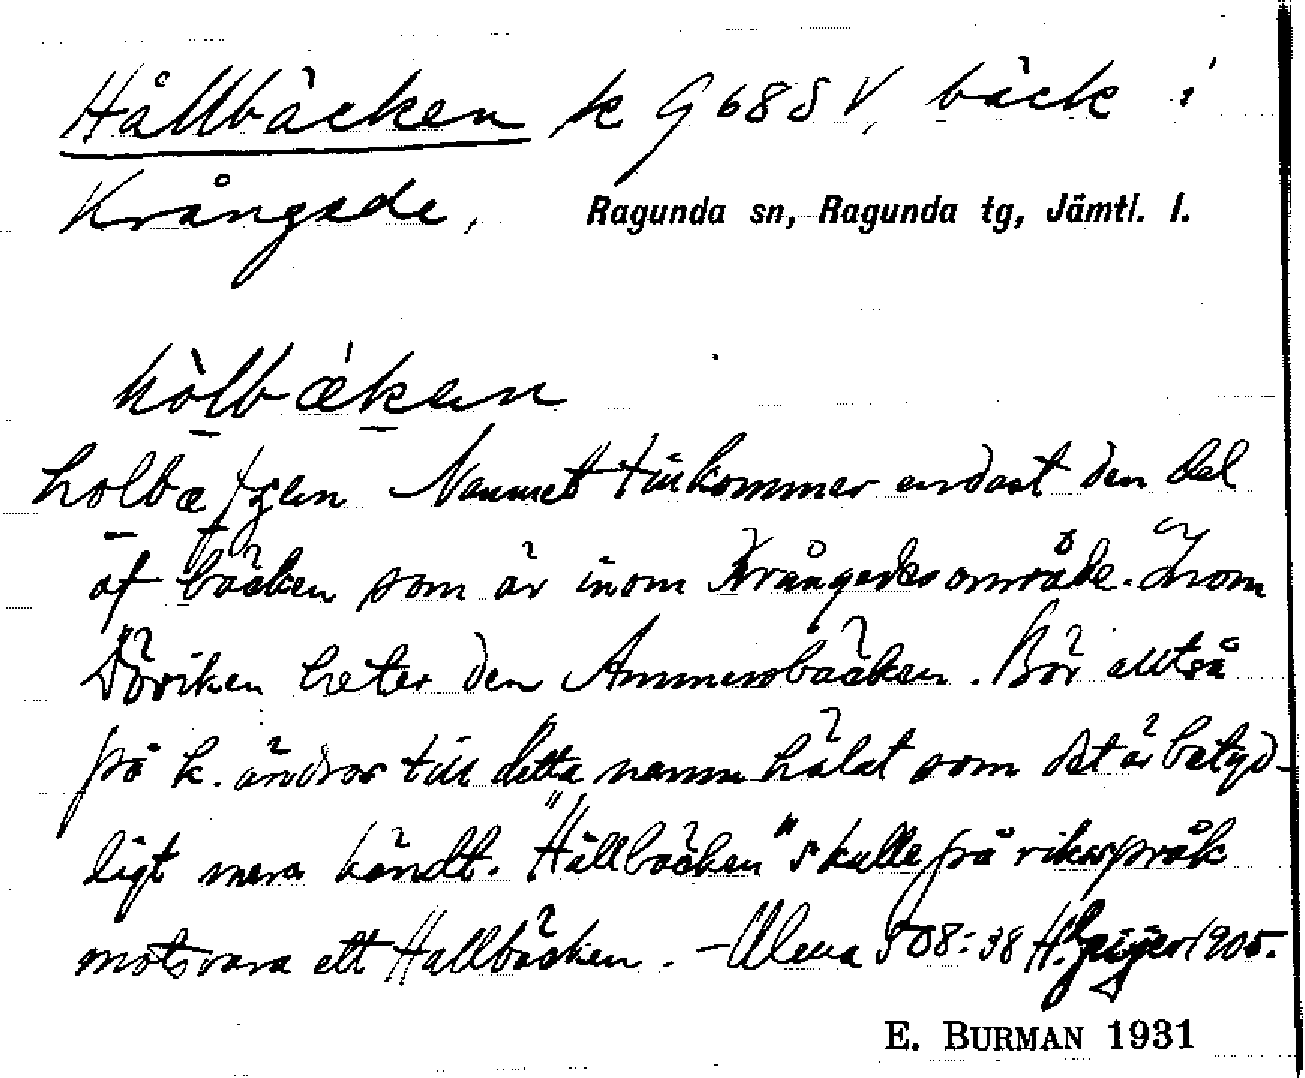 Hållbäcken k G 68 S V, bäck i
Krångede, Ragunda sn, Ragunda tg, Jämtl. l.
hòlbækan
Namnet tillkommer endast den del
af bäcken som är inom Krångedes område. Inom
Döviken heter den Ammerobäcken. Bör alltså
på k. ändras till detta namn hälst som det är betyd-
ligt mera kändt. "Hållbäcken" skulle på riksspråk
motsvara ett Hallbäcken. – Ulma 508:38 H. Geijer 1905.
E. BURMAN 1931